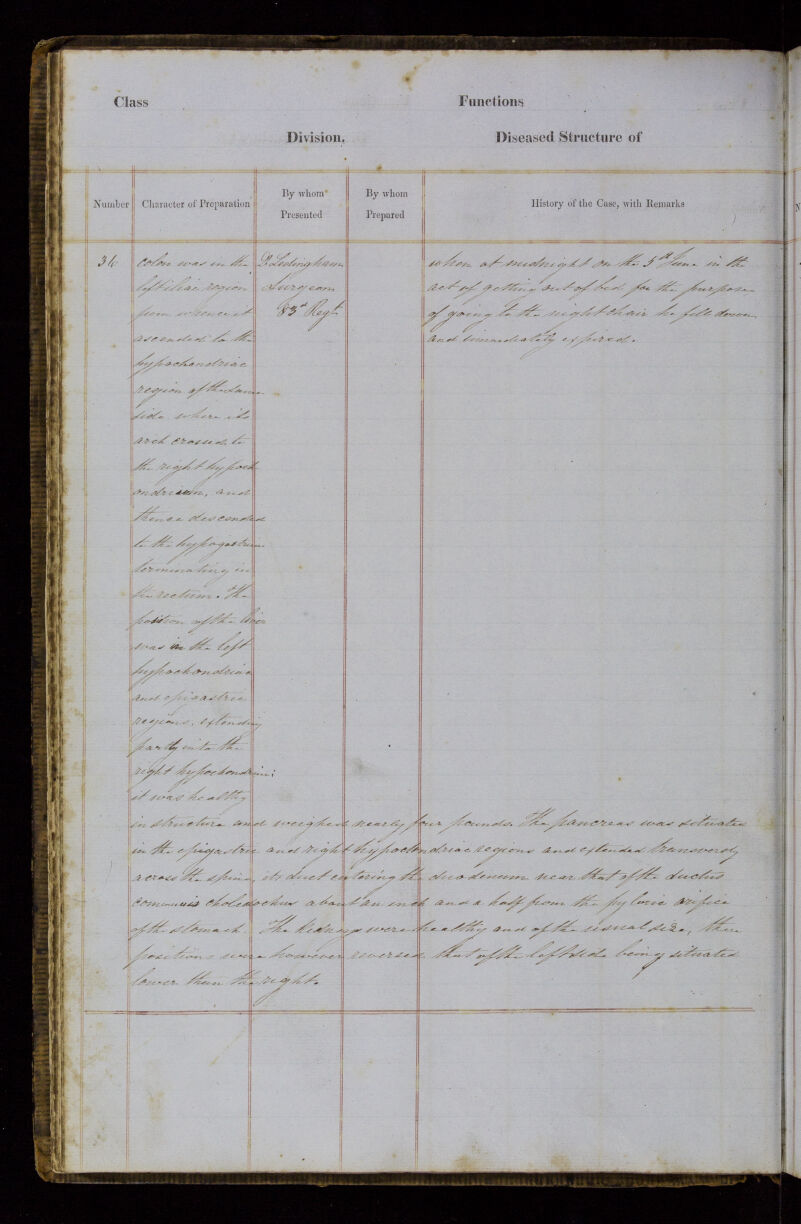 Class
Functions
Division.
Diseased Structure of
Number
Character of Preparation
By whom
Presented
By whom
Prepared
History of the Case, with Remarks
34
colon was in the
left iliac region
from whence it
ascended to the
hypochondriac
region of the same
side where its
arch crossed to
the right hypoch
ondrium, and
thence descended
to the hypogastrium
terminating in
the rectum. The
position of the liver
was in the left
hypochondriac
and epigastric
regions, extending
partly into the
right hypochondrium;
it was healthy
in structure and weighed nearly four pounds. The pancreas was situated
in the epigastric and right hypochondriac regions and extended transversely
across the spine, its duct entering the duodenum near that of the ductus
communis choledochus about an inch and a half from the pyloric orifice
of the stomach. The Kidneys were healthy and of the usual size, their
positions were however reversed that of the left side being situated
lower than the right.
D Ledingham
Surgeon
83d Regt
when at midnight on the 5th June in the
act of getting out of bed for the purpose
of going to the night chair he fell down
and immediately expired.